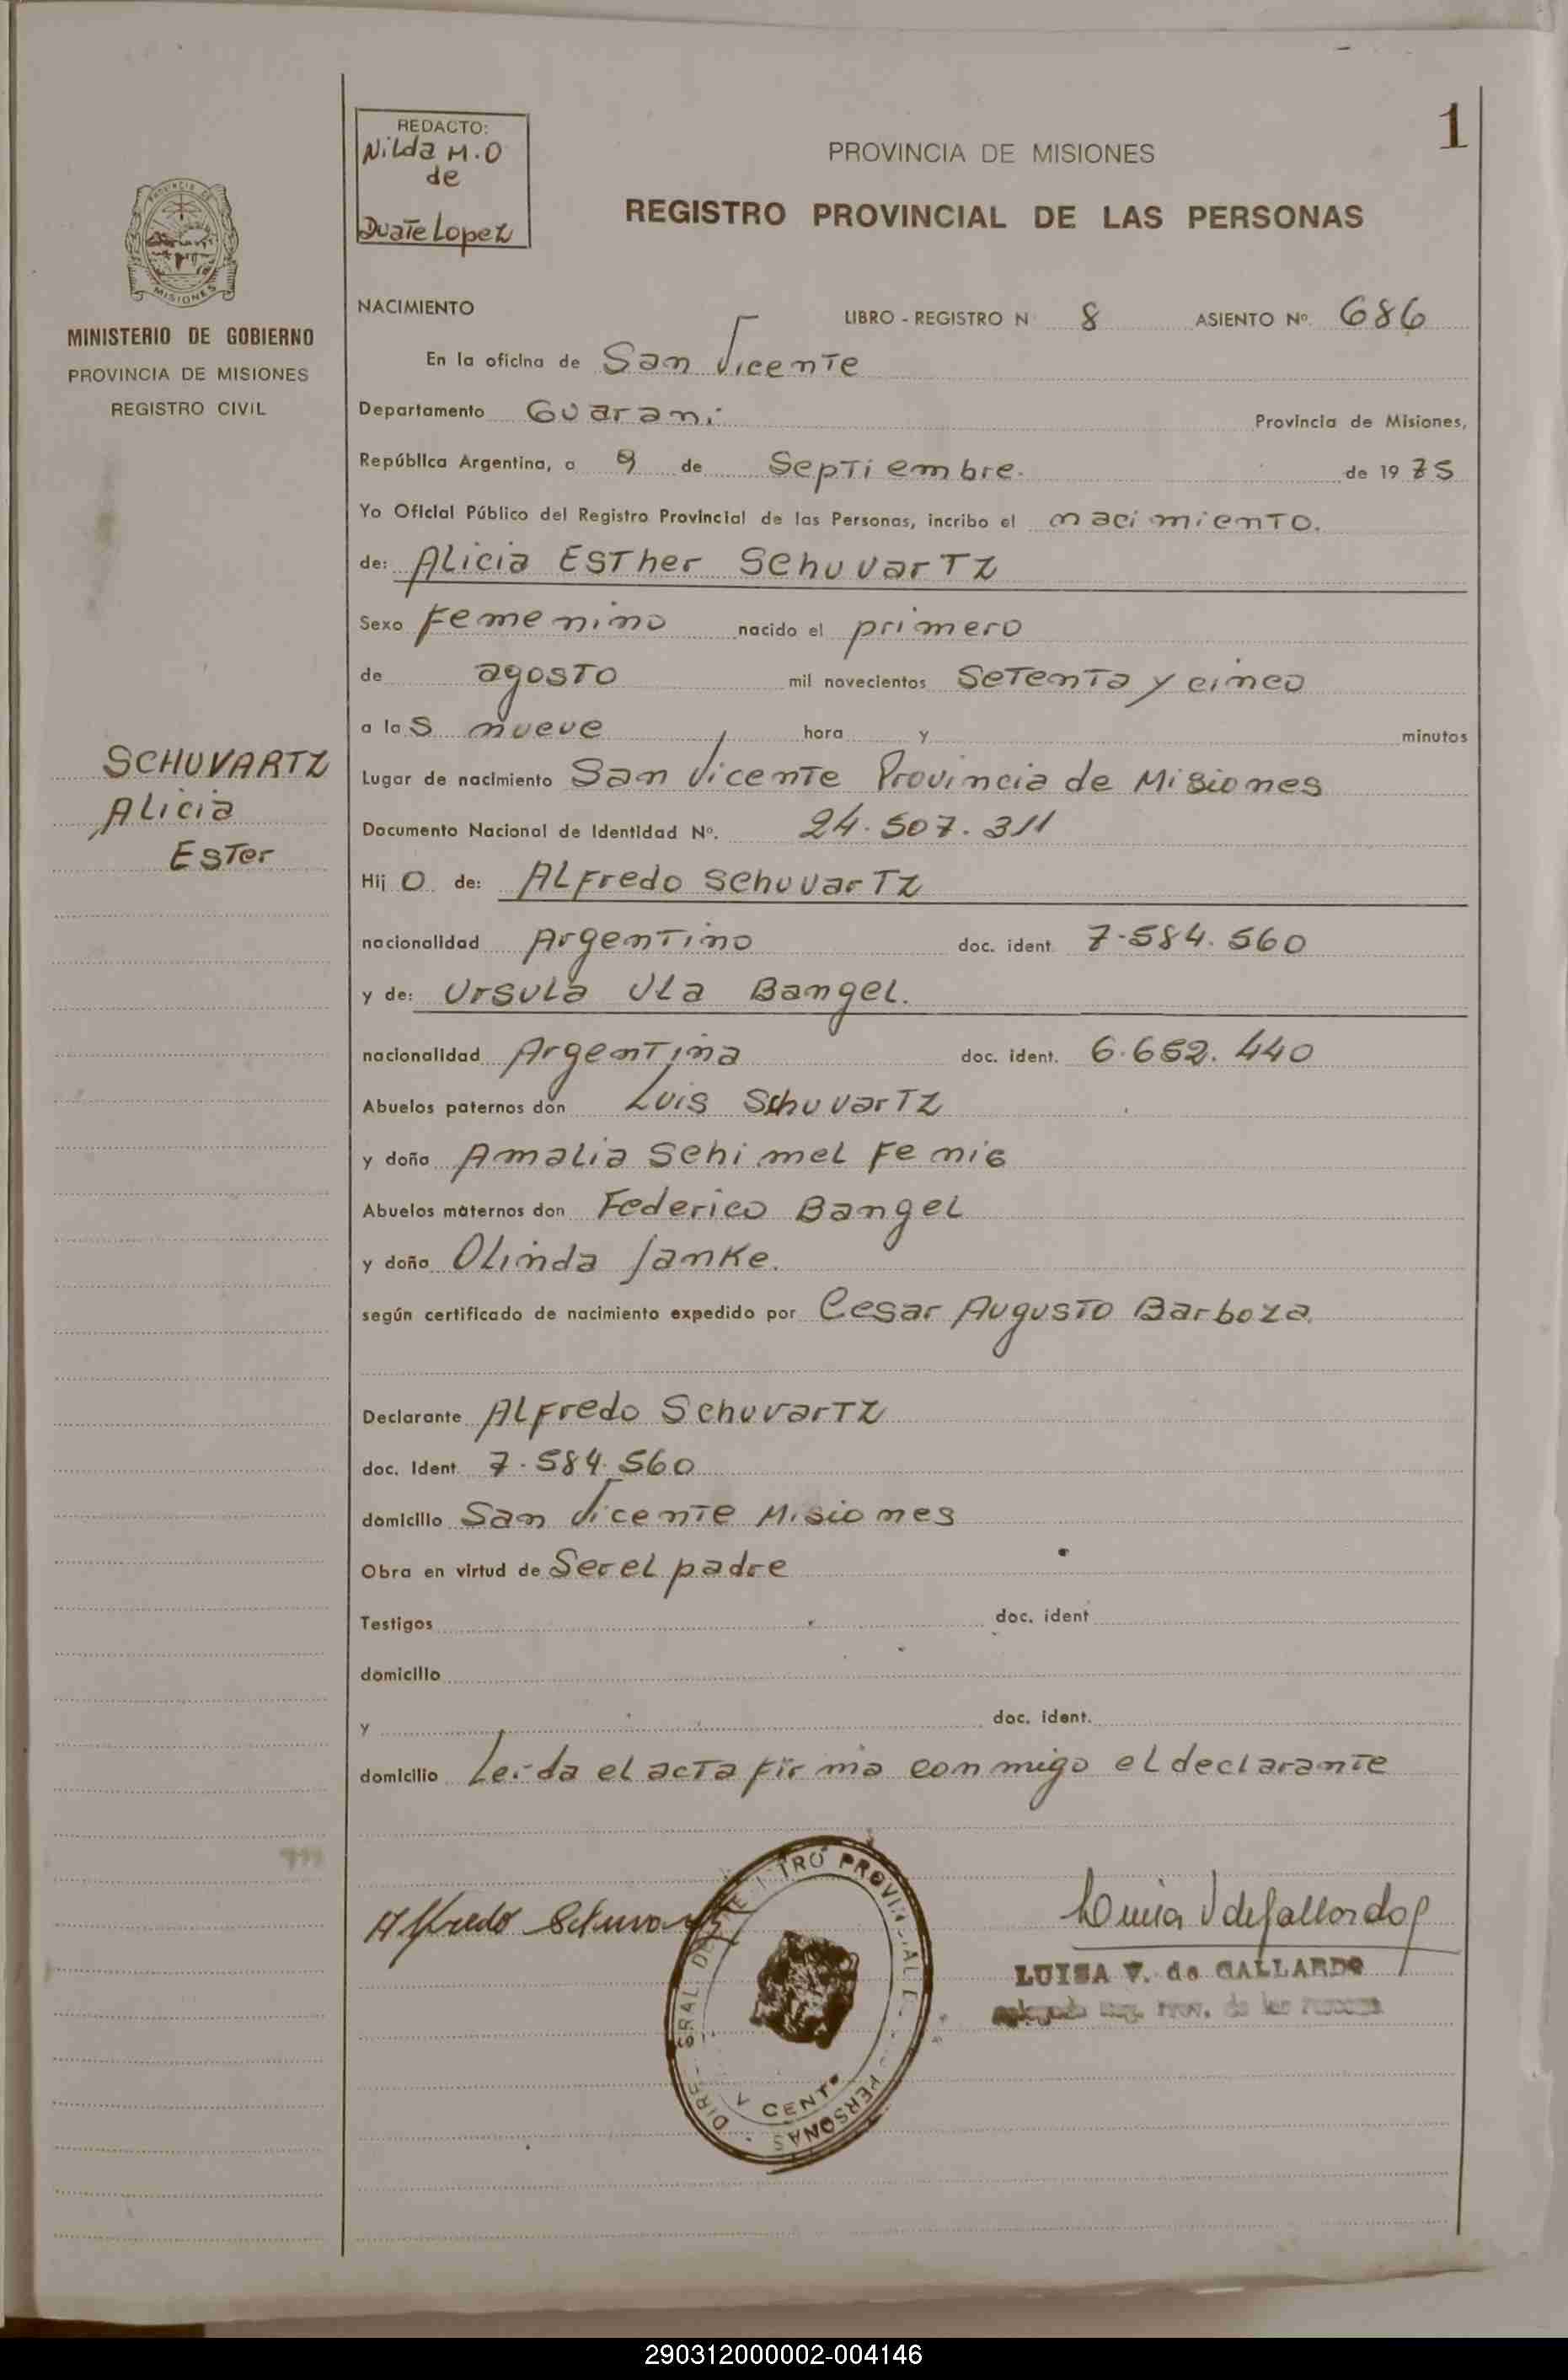 1
REDACTO:
Nilda M.O
de
Duarte Lopez
PROVINCIA DE MISIONES
REGISTRO PROVINCIAL DE LAS PERSONAS
MISIONES
MINISTERIO DE GOBIERNO
PROVINCIA DE MISIONES
REGISTRO CIVIL
SCHUVARTZ
Alicia
Ester
NACIMIENTO LIBRO - REGISTRO N 8 ASIENTO Nº. 686
En la oficina de San Vicente
Departamento Guarani Provincia de Misiones,
República Argentina, a 9 de Septiembre. de 1975
Yo Oficial Público del Registro Provincial de las Personas, incribo el nacimiento.
de: Alicia Esther Schuvartz
Sexo Femenino nacido el primero
de agosto mil novecientos Setenta y cinco
a las nueve hora y minutos
Lugar de nacimiento San Vicente Provincia de Misiones
Documento Nacional de Identidad Nº. 24.507.311
Hijo de: Alfredo Schuvartz
nacionalidad Argentino doc. ident. 7.584.560
y de: Ursula Ula Bangel.
nacionalidad Argentina doc. ident. 6.652.440
Abuelos paternos don Luis Schuvartz
y doña Amalia Schimel Fenig
Abuelos maternos don Federico Bangel
y doña Olinda Janke.
según certificado de nacimiento expedido por Cesar Augusto Barboza.
Declarante Alfredo Schuvartz
doc. Ident. 7.584.560
domicilio San Vicente Misiones
Obra en virtud de Ser el padre
Testigos doc. ident
domicilio
y doc. ident.
domicilio Leida el acta firma conmigo el declarante
Alfredo Schuvartz
PERSONAS
LUISA V. de GALLARDO
290312000002-004146